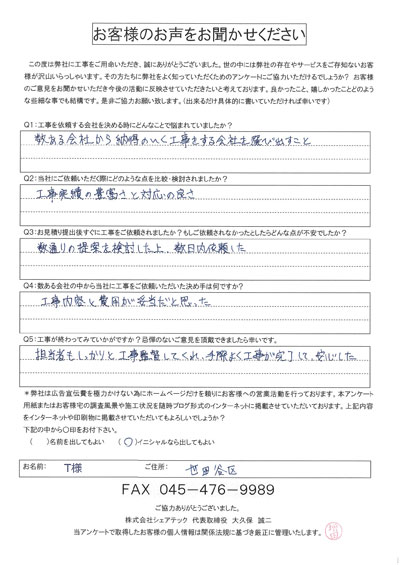 お客様のお声をお聞かせください
この度は弊社に工事をご用命いただき、誠にありがとうございました。世の中には弊社の存在やサービスをご存知ないお客様が沢山いらっしゃいます。その方たちに弊社をよく知っていただくためのアンケートにご協力いただけるでしょうか? お客様のご意見をお聞かせいただき今後の活動に反映させていただきたいと考えております。良かったこと、嬉しかったことどのような些細な事でも結構です。是非ご協力お願い致します。(出来るだけ具体的に書いていただければ幸いです)
Q1:工事を依頼する会社を決める時にどんなことで悩まれていましたか?
数ある会社から納得のいく工事をする会社を選び出すこと
Q2:当社にご依頼いただく際にどのような点を比較・検討されましたか?
工事実績の豊富さと対応の良さ
Q3:お見積り提出後すぐに工事をご依頼されましたか?もしご依頼されなかったとしたらどんな点が不安でしたか?
数通りの提案を検討した上、数日内依頼した
Q4:数ある会社の中から当社に工事をご依頼をいただいた決め手は何ですか?
工事内容と費用が妥当だと思った
Q5:工事が終わってみていかがですか?忌憚のないご意見を頂戴できましたら幸いです。
担当者もしっかりと工事監督してくれ、手際よく工事が完了して、安心した
*弊社は広告宣伝費を極力かけない為にホームページだけを頼りにお客様への営業活動を行っております。本アンケート
用紙またはお客様宅の調査風景や施工状況を随時ブログ形式のインターネットに掲載させていただいております。上記内容
をインターネットや印刷物に掲載させていただいてもよろしいでしょうか?
下記の中から〇印をお付下さい。
( )名前を出してもよい (〇)イニシャルなら出してもよい
お名前: T様 ご住所: 世田谷区
FAX 045-476-9989
ご協力ありがとうございました。
株式会社シェアテック 代表取締役 大久保 誠二
当アンケートで取得したお客様の個人情報は関係法規に基づき厳正に管理いたします。